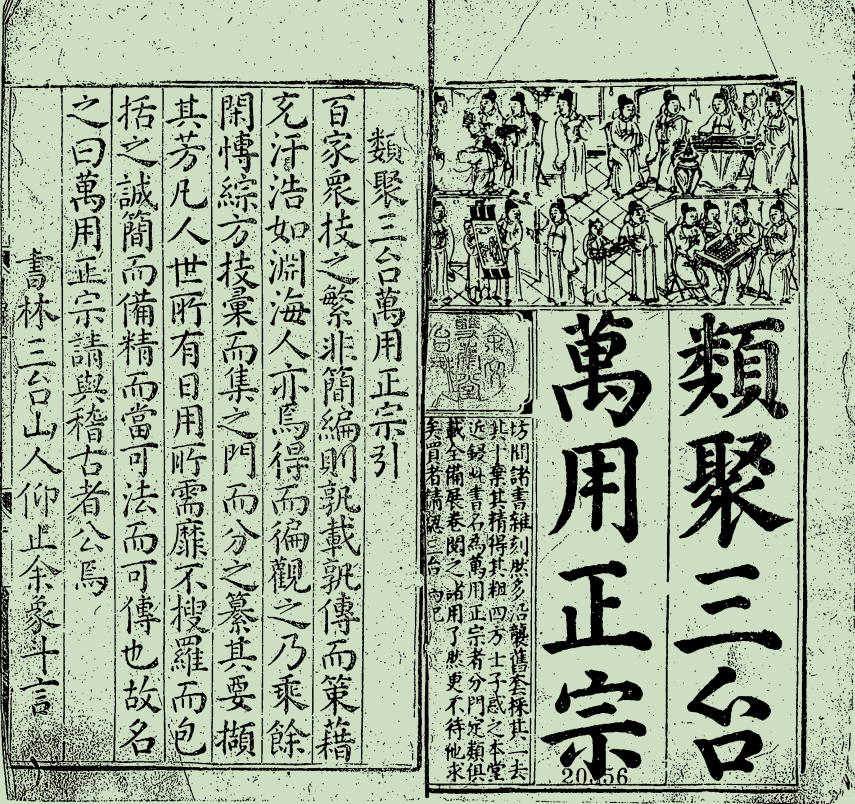 類聚三台
萬用正宗
坊間諸書雜刻然多沿襲舊套採其一去
其十棄其精得其粗四方士子惑之本堂
近鋟此書名為萬用正宗者分門定類俱
載全備展卷閱之諸用了然更不待他求
矣買者請認三台為記
20556
類聚三台萬用正宗引
百家衆技之繁非簡編則孰載孰傳而策藉
充汗浩如淵海人亦焉得而徧觀之乃乘餘
閑慱綜方技彙而集之門而分之纂其要擷
其芳凡人世所有日用所需靡不搜羅而包
括之誠簡而備精而當可法而可傳也故名
之曰萬用正宗請與稽古者公焉
書林三台山人仰止余象斗言